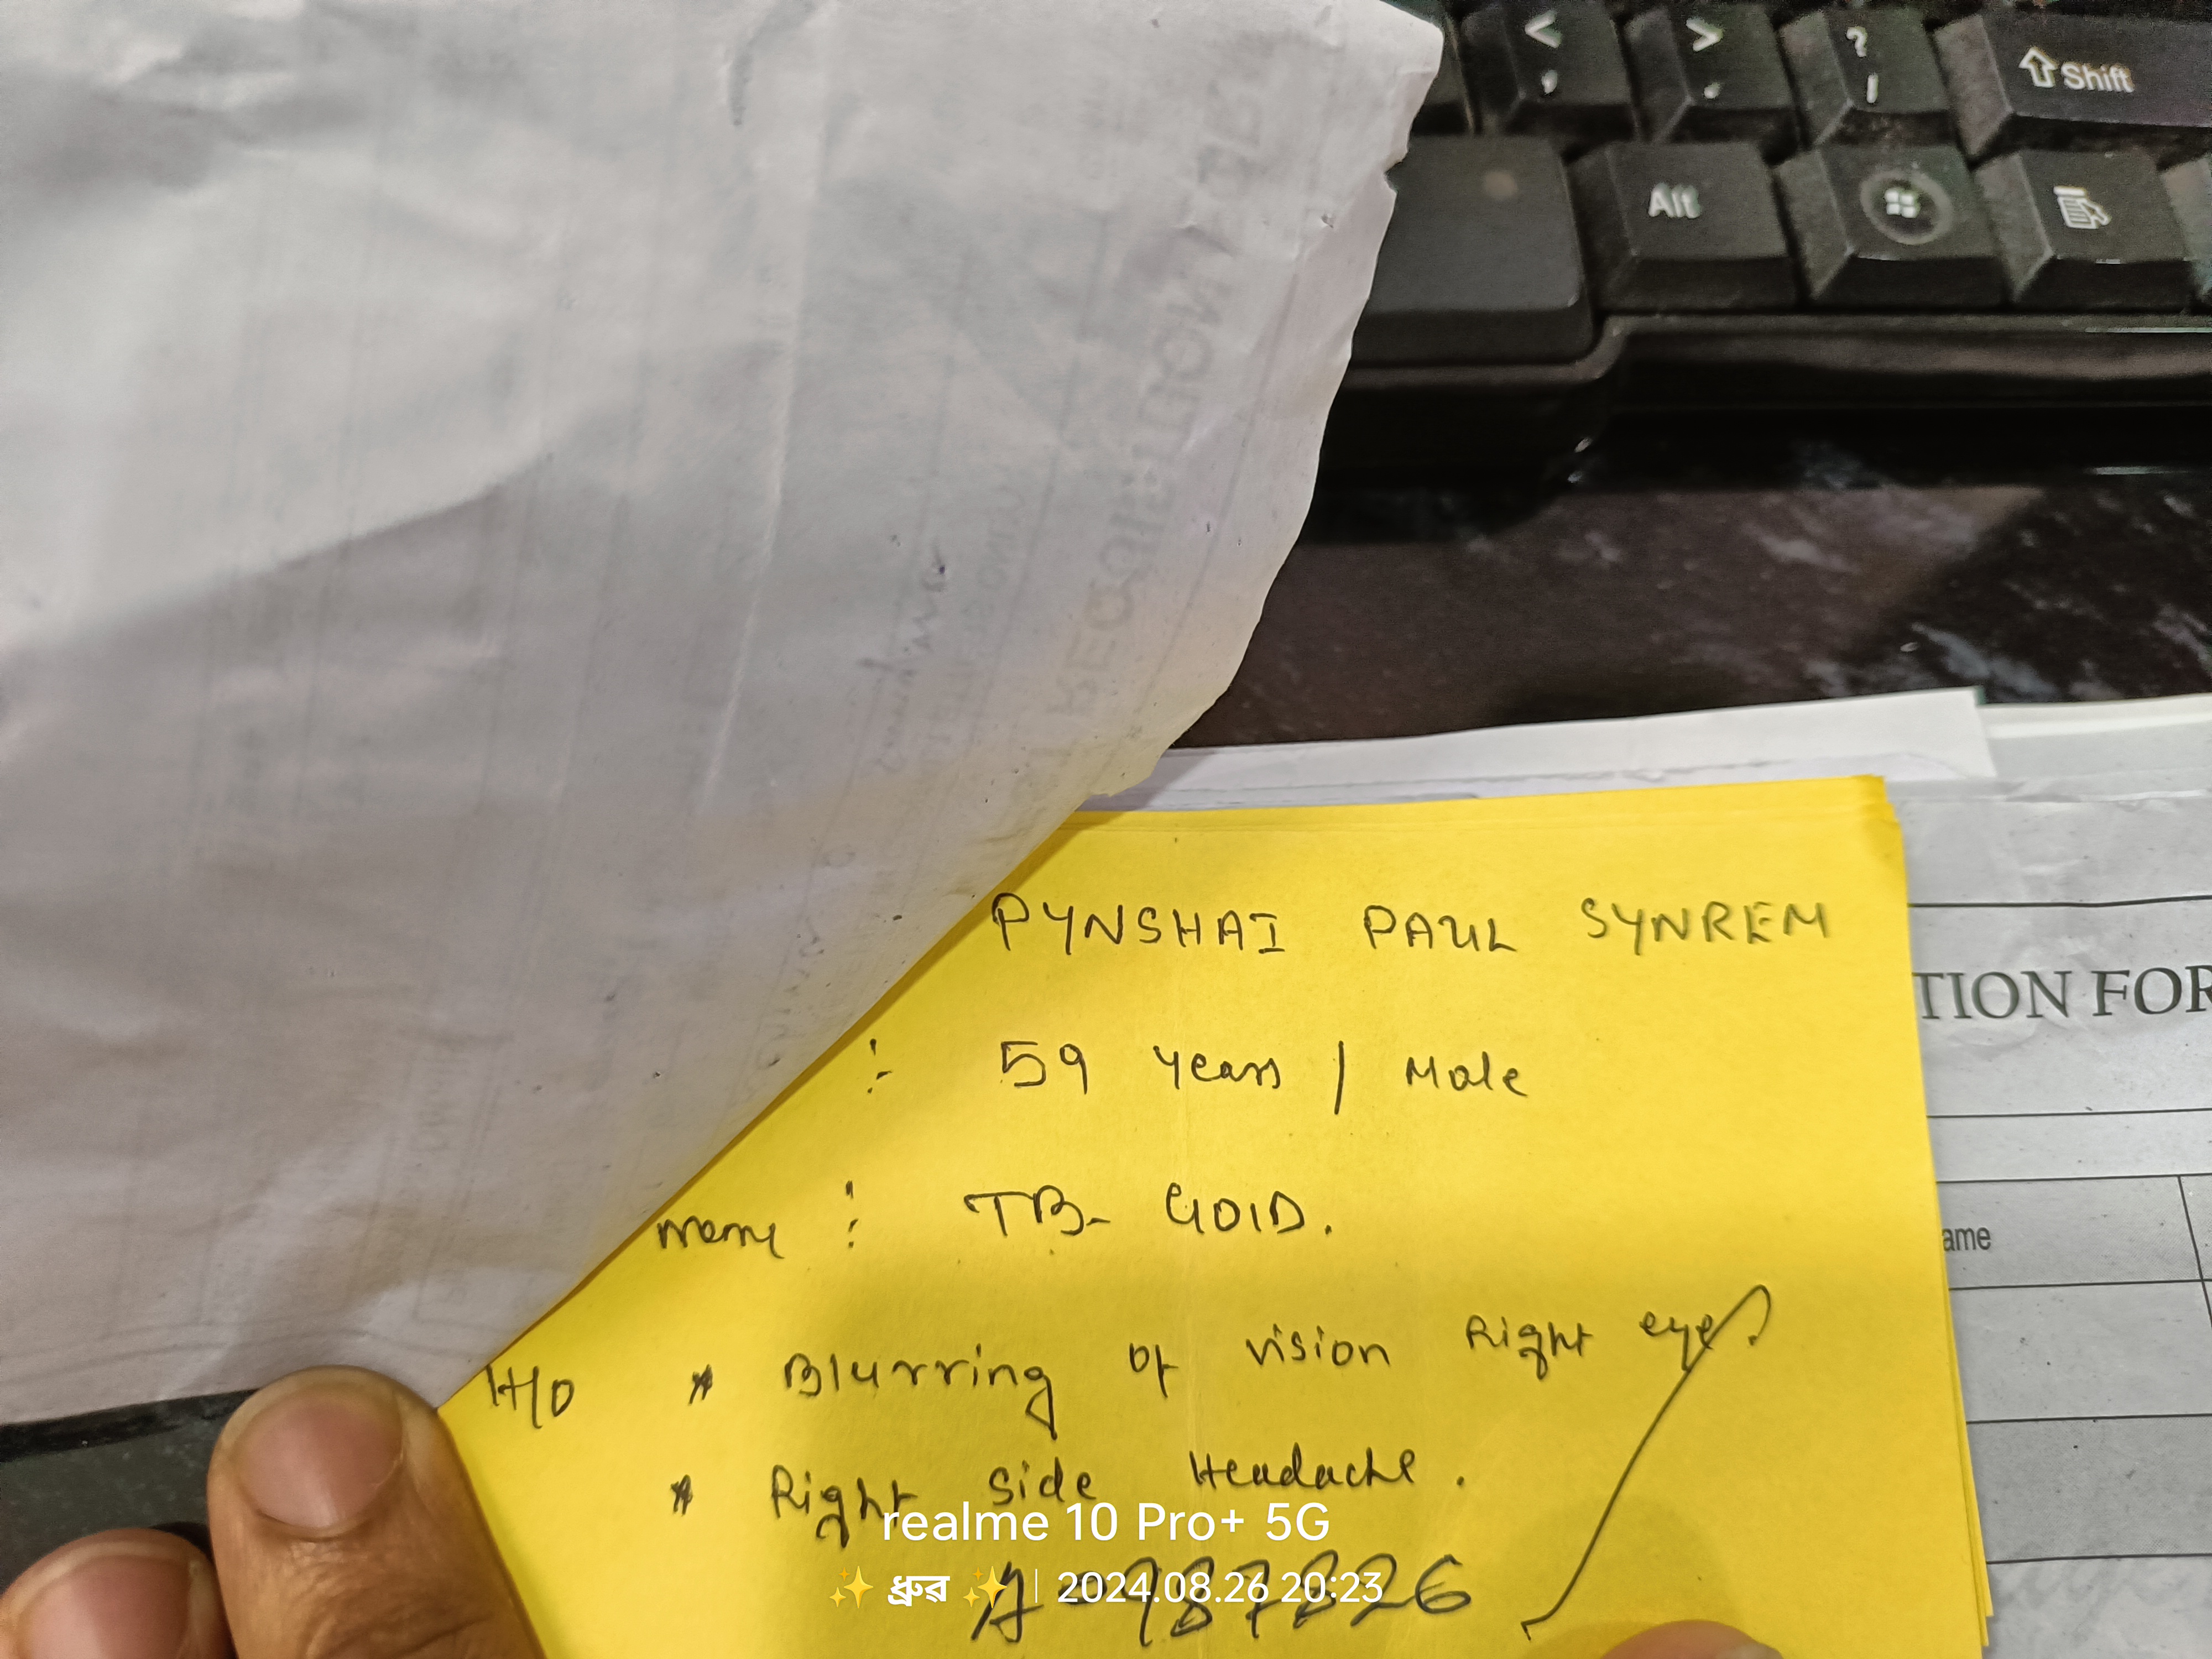 < > ?
, . /
Shift
Alt
PYNSHAI PAUL SYNREM
TION FOR
: 59 Years / Male
Name : TB- GOLD.
ame
H/O * Blurring of vision Right eye.
* Right side Headache.
realme 10 Pro+ 5G
✨ ধ্রুৱ ✨ | 2024.08.26 20:23